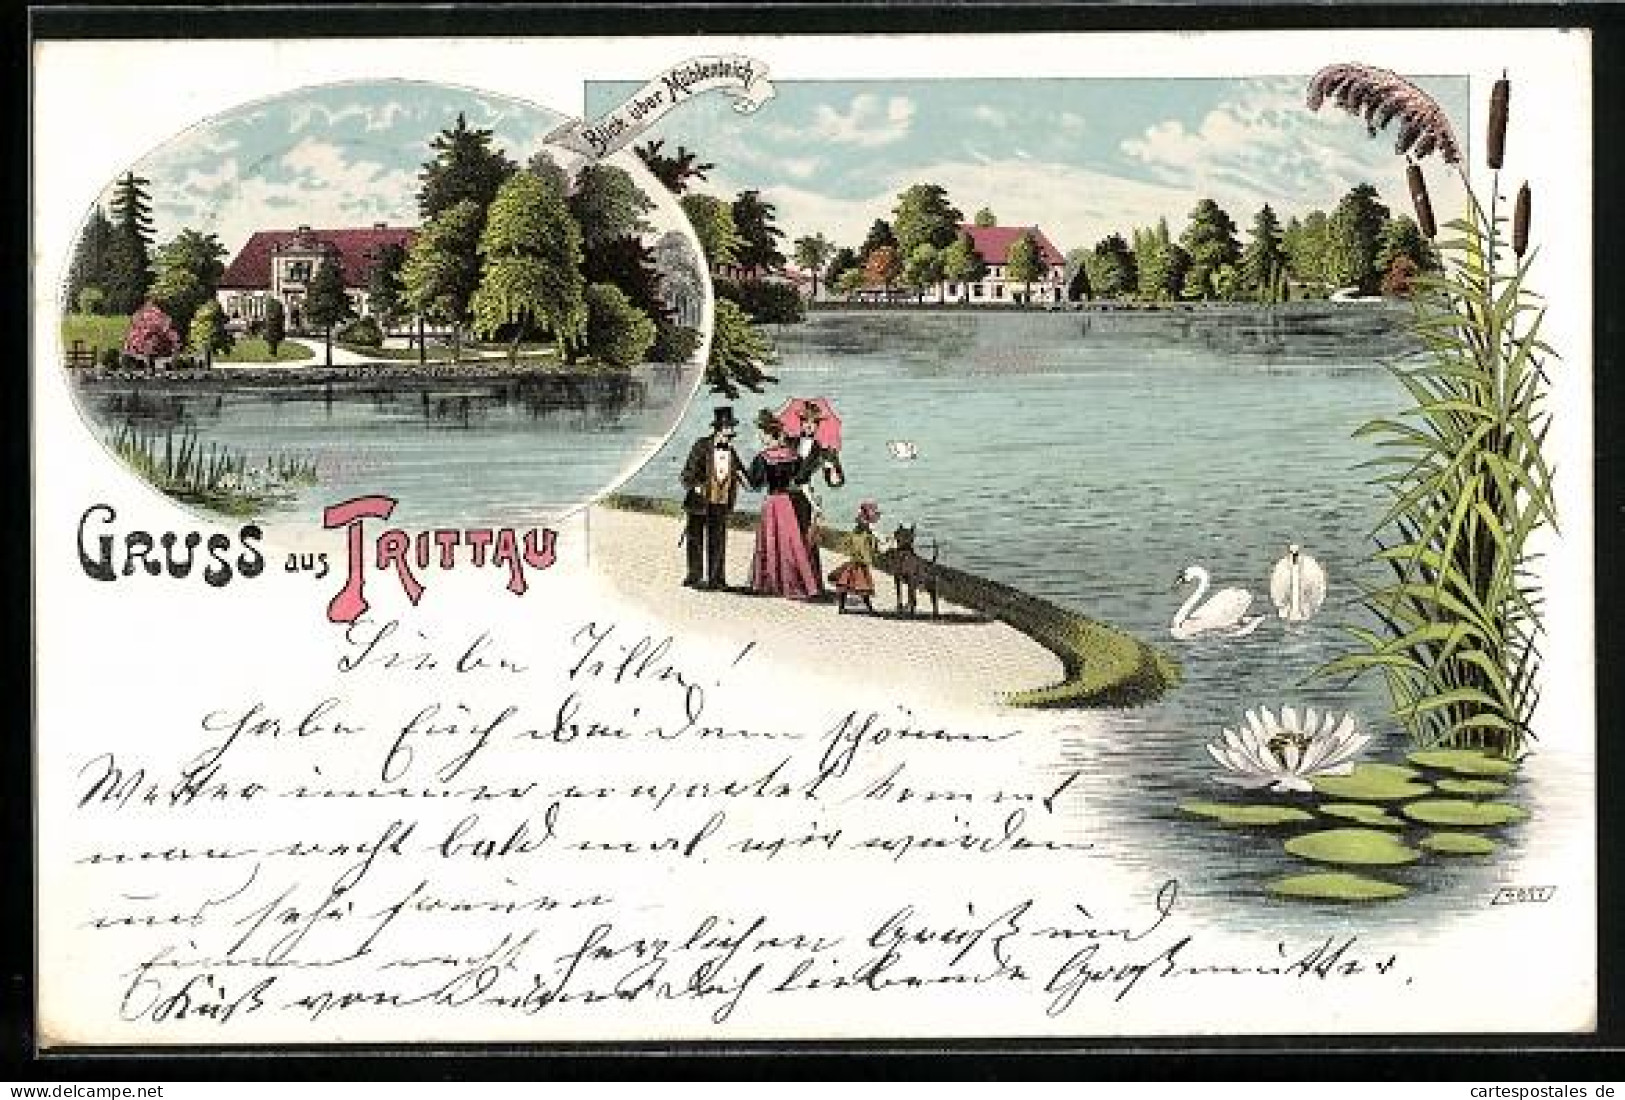 Blick über Mühlenteich
GRUSS aus TRITTAU
Liebe Tilly!
Habe Euch bei dem schönen
Wetter immer erwartet kommt
man recht bald mal, wir würden
uns sehr freuen
Einen recht herzlichen Gruß und
Kuß von Deiner Dich liebende Großmutter.
cartespostales de